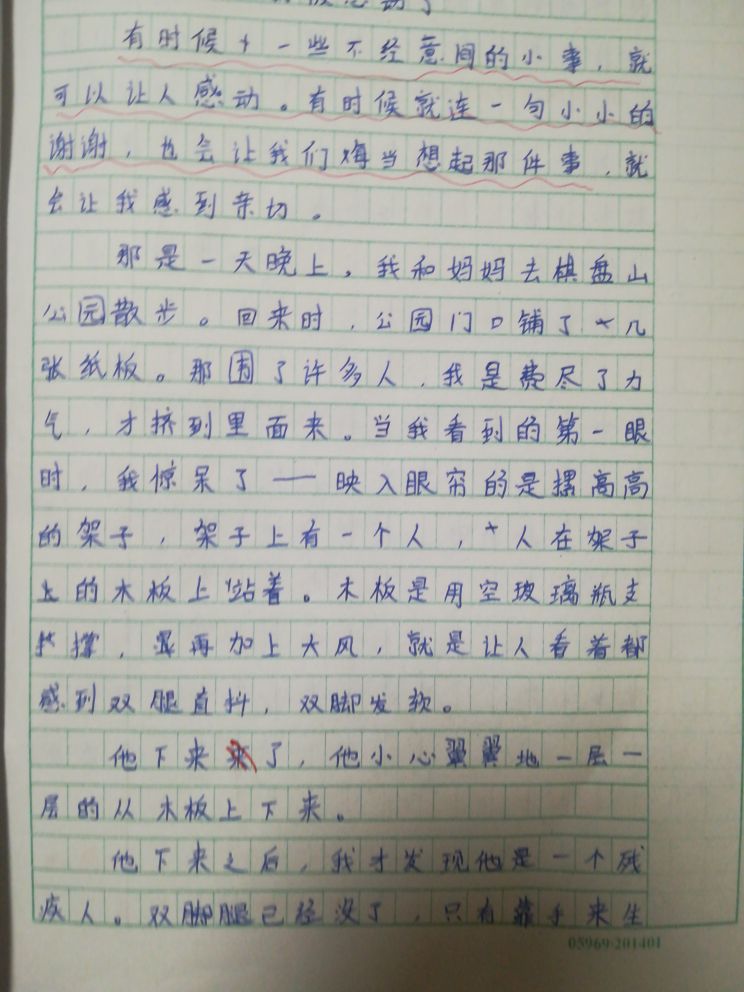 被感动了
有时候，一些不经意间的小事，就
可以让人感动。有时候就连一句小小的
谢谢，也会让我们每当想起那件事，就
会让我感到亲切。
那是一天晚上，我和妈妈去棋盘山
公园散步。回来时，公园门口铺了几
张纸板。那围了许多人，我是费尽了力
气，才挤到里面来。当我看到的第一眼
时，我惊呆了——映入眼帘的是摞高高
的架子，架子上有一个人，人在架子
上的木板上站着。木板是用空玻璃瓶支
撑，再加上大风，就是让人看着都
感到双腿直抖，双脚发软。
他下来了，他小心翼翼地一层一
层的从木板上下来。
他下来之后，我才发现他是一个残
疾人。双脚腿已经没了，只有靠手来生
05969·201401